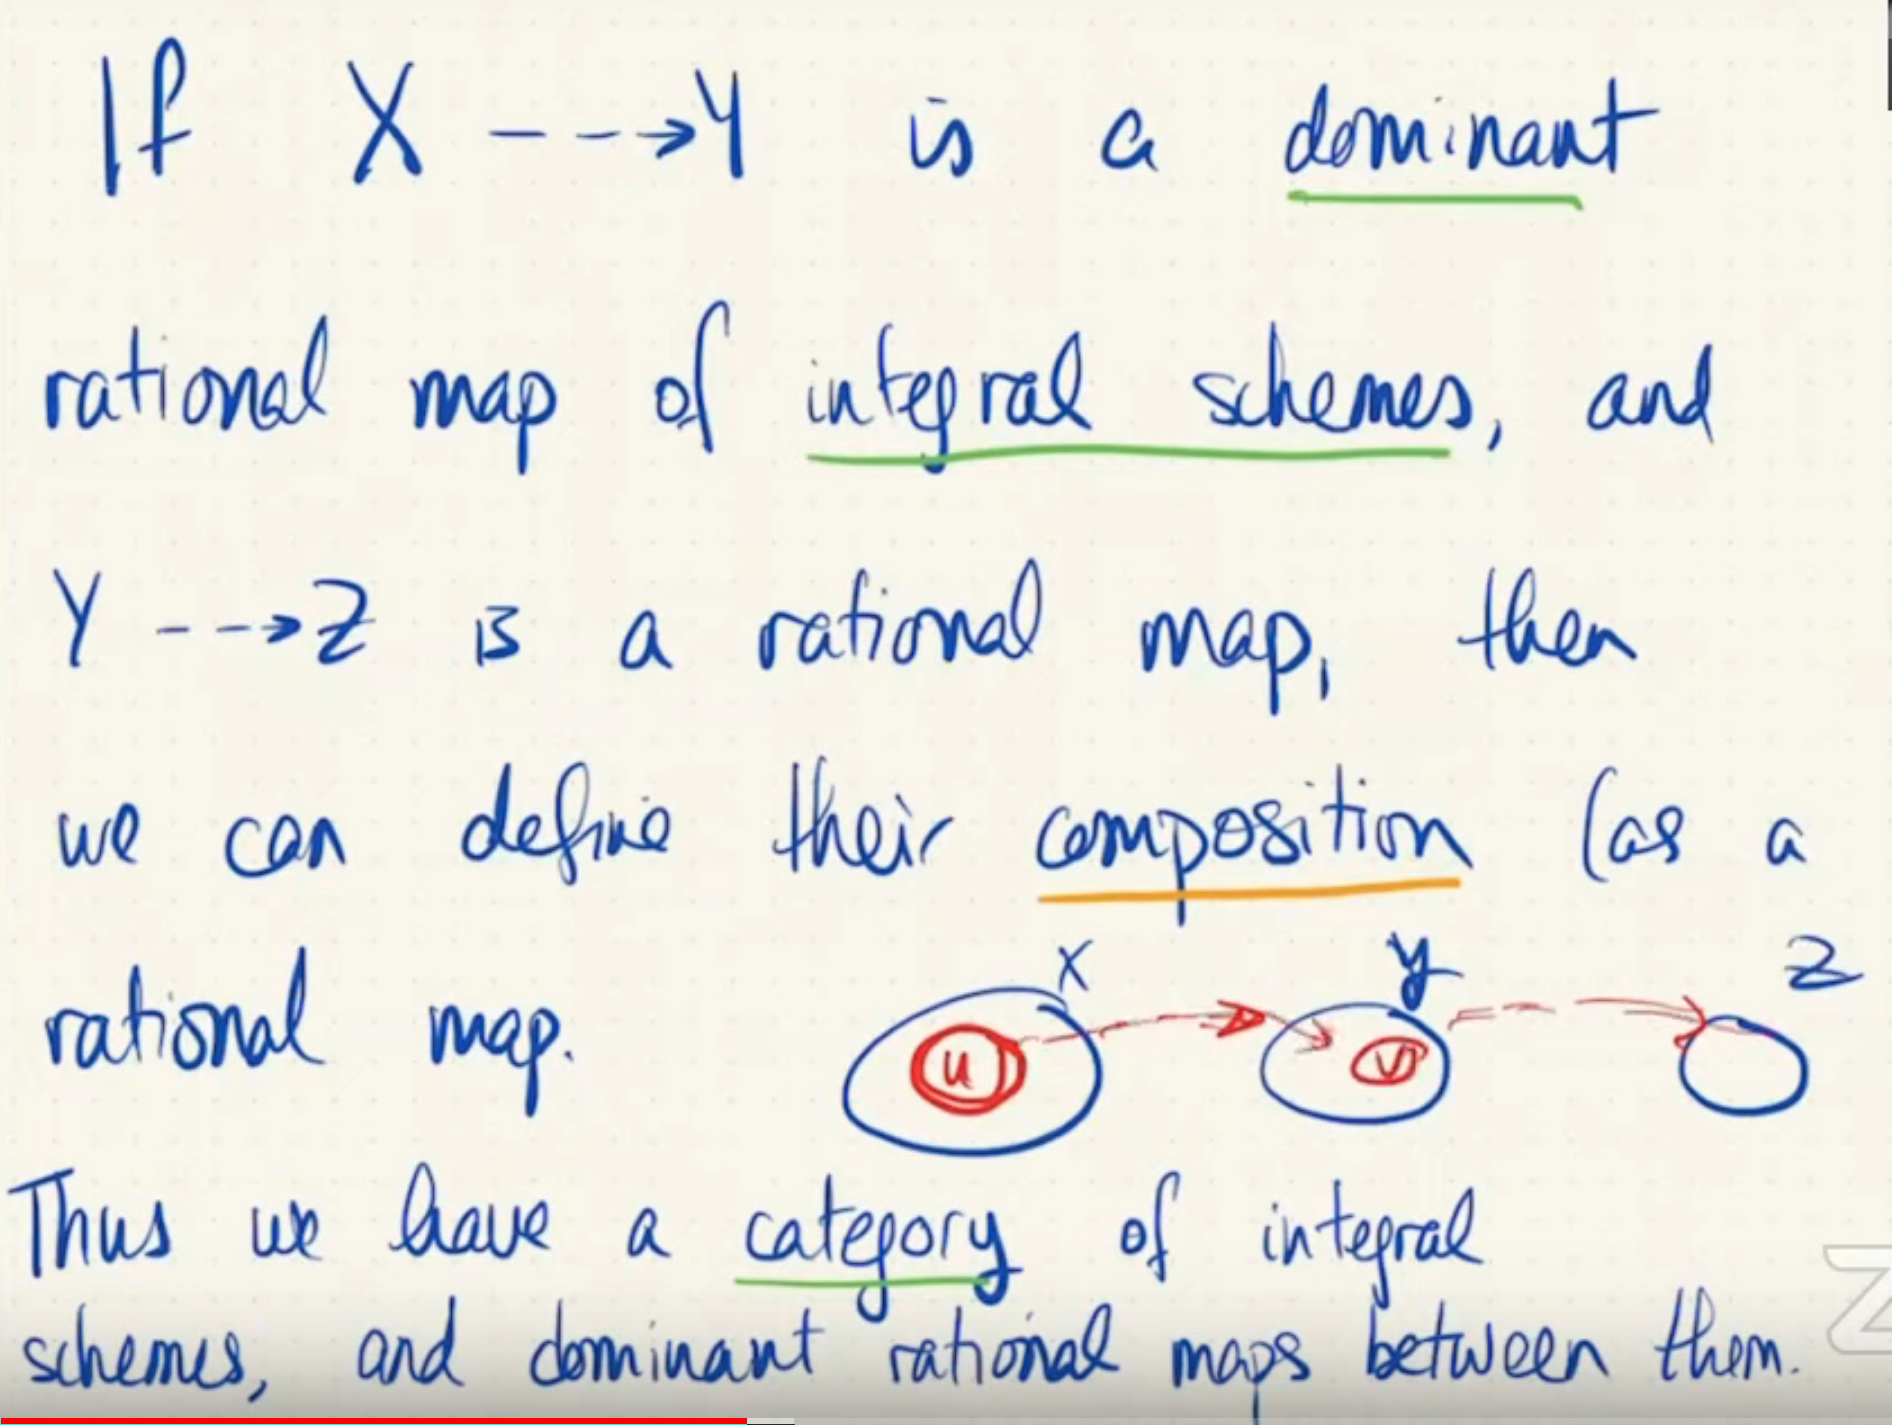 If X ---> Y is a dominant
rational map of integral schemes, and
Y ---> Z is a rational map, then
we can define their composition (as a
rational map.
X Y Z
U V
Thus we have a category of integral
schemes, and dominant rational maps between them.
Z